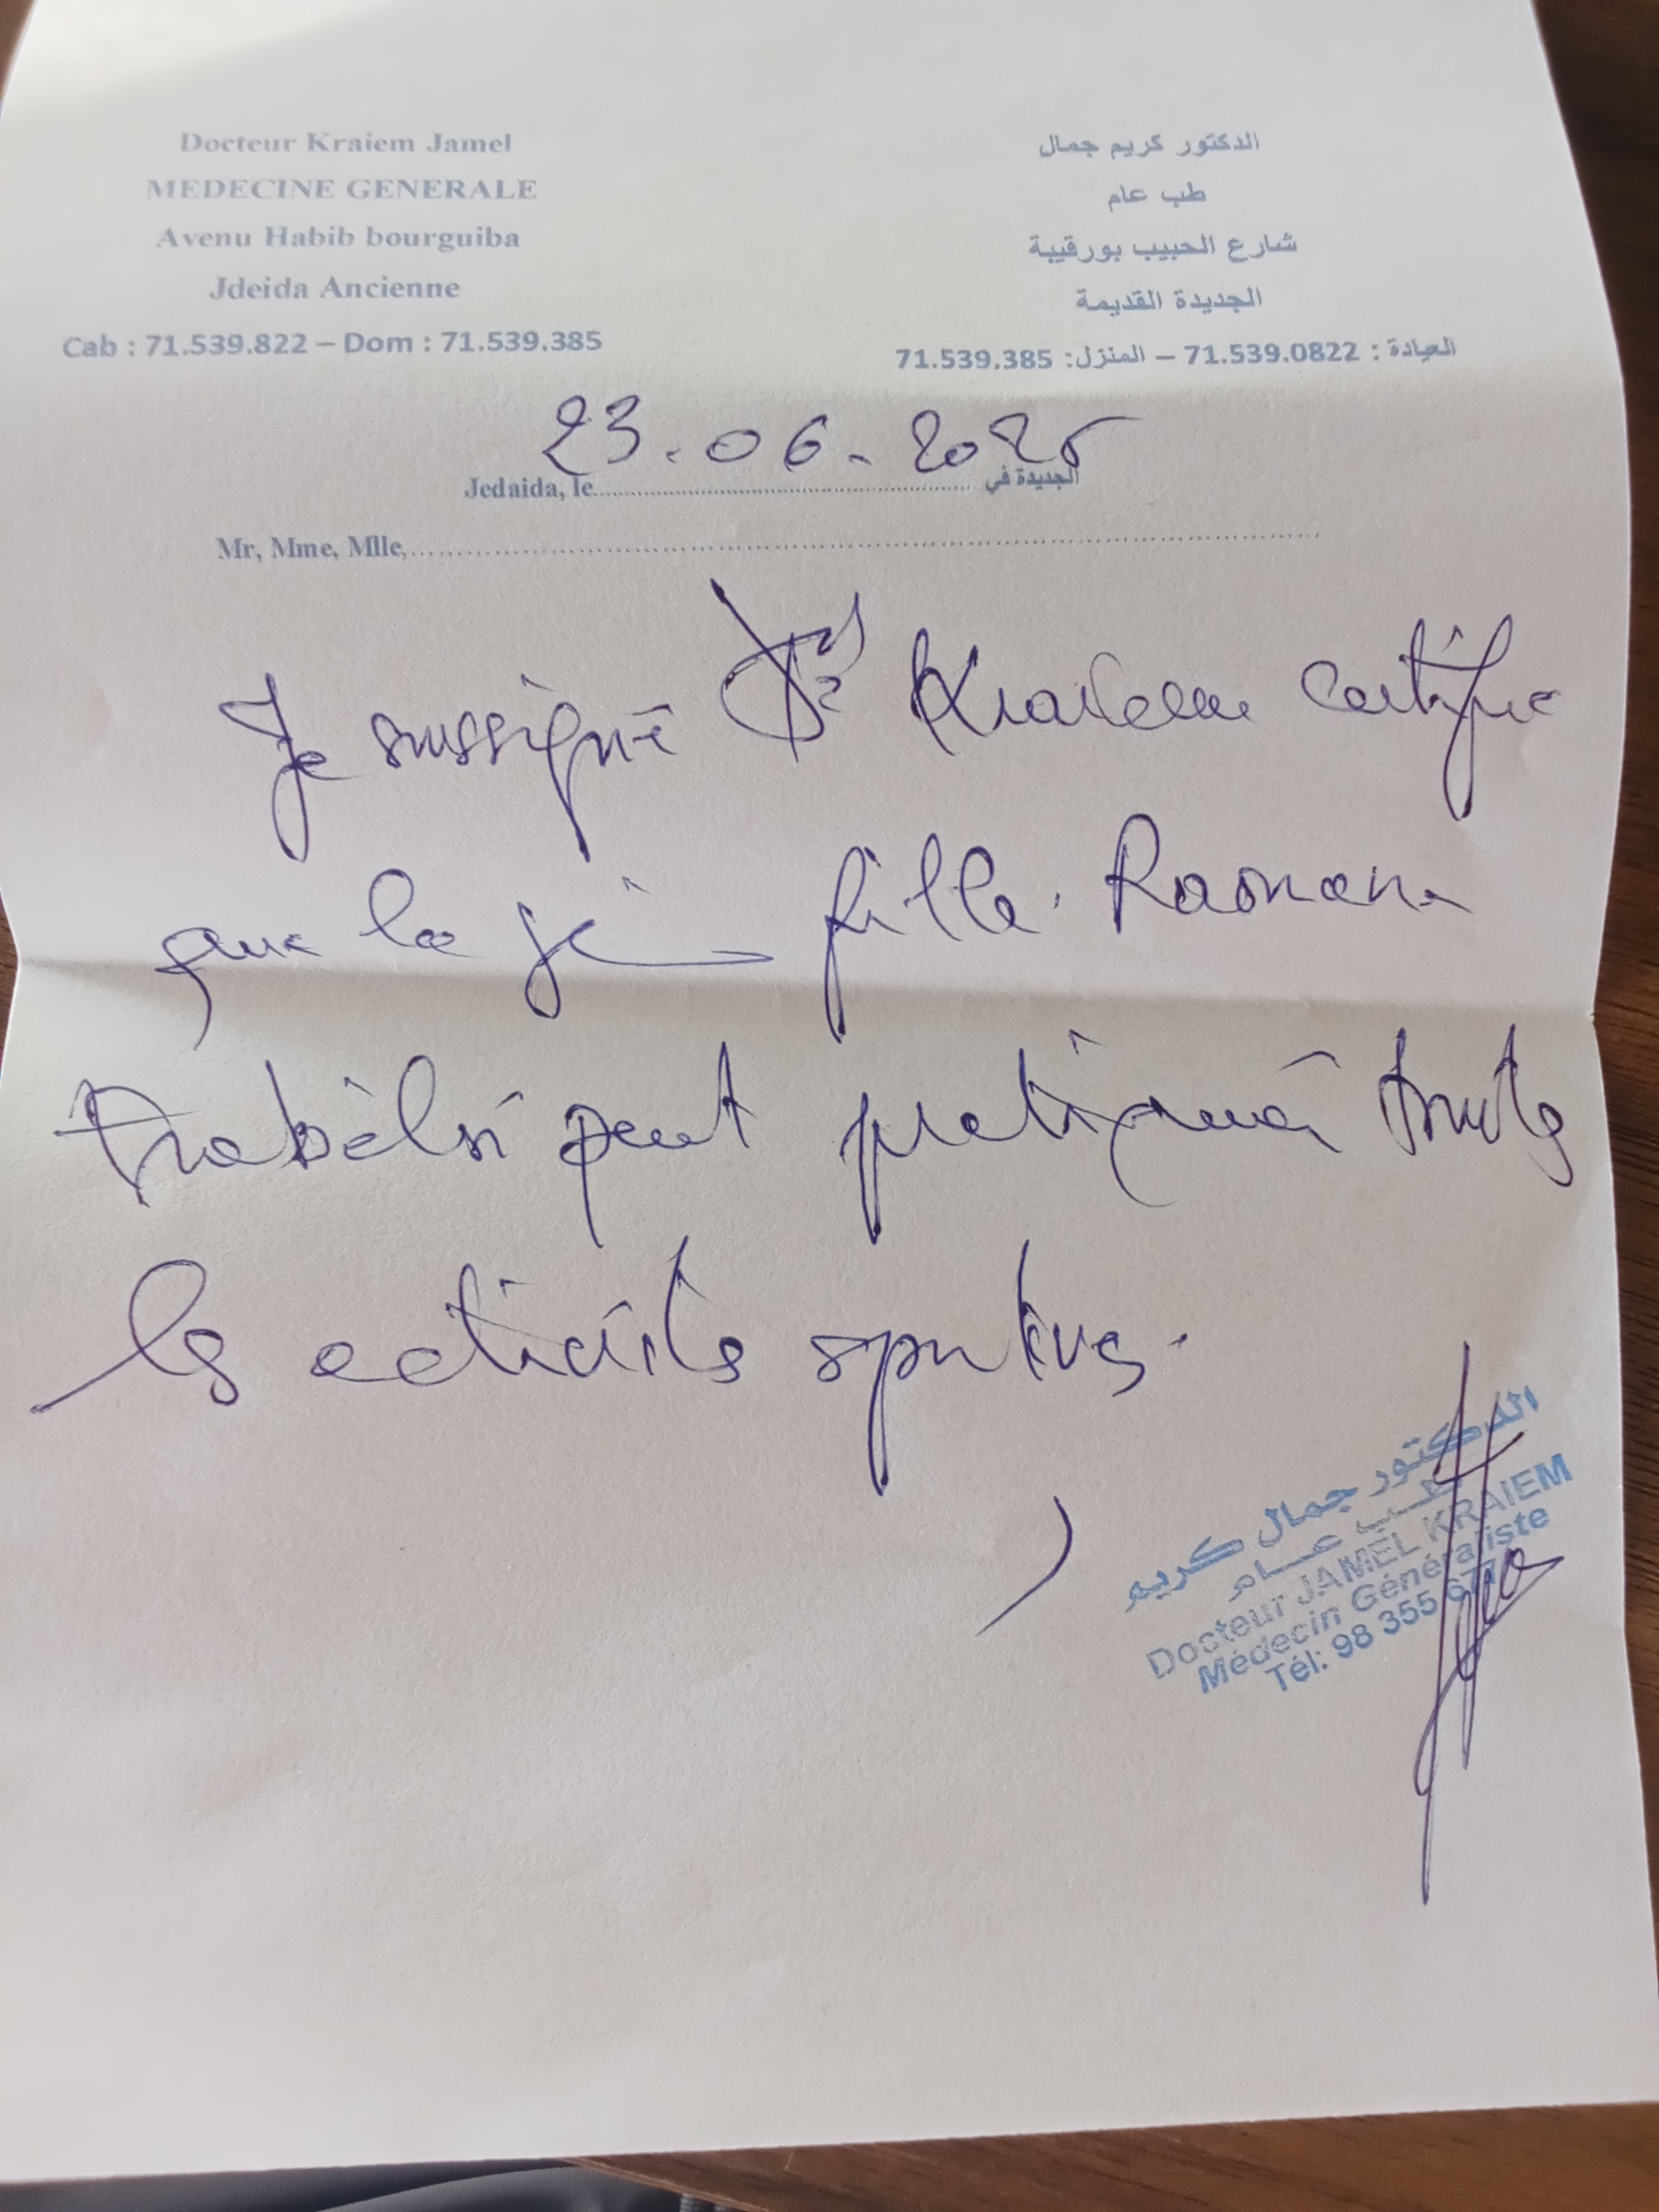 Docteur Kraiem Jamel
MEDECINE GENERALE
Avenu Habib bourguiba
Jdeida Ancienne
Cab : 71.539.822 – Dom : 71.539.385
الدكتور كريم جمال
طب عام
شارع الحبيب بورقيبة
الجديدة القديمة
العيادة : 71.539.0822 – المنزل: 71.539.385
23.06.2025
Jedaida, le الجديدة في
Mr, Mme, Mlle,
Je soussigné Kraiem certifie
que la fille
Trabelsi peut pratiquer toutes
les activités sportives.
الدكتور جمال كريم
طب عام
Docteur JAMEL KRAIEM
Médecin Généraliste
Tél: 98 355